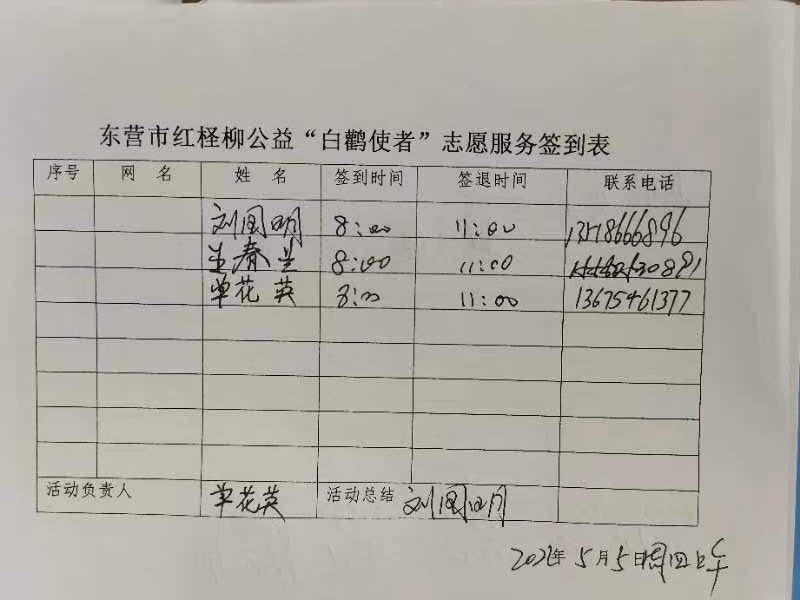 东营市红柽柳公益“白鹳使者”志愿服务签到表
序号 网 名 姓 名 签到时间 签退时间 联系电话
刘国明 8:00 11:00 13518666896
王春兰 8:00 11:00
单花英 8:00 11:00 13675461377
活动负责人 单花英 活动总结 刘国明
2022年5月5日周四上午